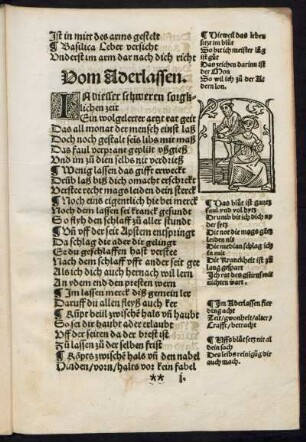 Ist in mitt des arms gestelt
¶ Basilica Leber versicht
Vnderst im arm dar nach dich richt
Vom Aderlassen.
IN diesser schweren sorglichen zeit
Ein wolgelerter artzt rat geit
Das all monat der mensch einst laß
Doch noch gestalt seis libs mit maß
Das faul verprant geplüt vßgieß
Vnd im zů dien selbs nit verdrieß
¶ Wenig lassen das gifft erweckt
Drüb laß biß dich omacht erschreckt
Verstee recht magß leiden dein sterck
¶ Noch eins eigentlich hie bei merck
Noch dem lassen sei kranck gesundt
So styrb den schlaff zů aller stundt
¶ Vñ vff der seit
Da schlag die ader die gelingt
Ee du geschlaffen hast versteet
Nach dem schlaff vff ander seit gee
Als ich dich auch hernach will lern
An
¶ Im lassen merck diß gemein ler
Daruff du allen fleyß auch ker
¶ Küpr beiil zwischẽ halß vñ haubt
So sei dir hauber ader erlaubt
Vff der seiten da der brest ist
Zů lassen zů der selben frist
¶ Köprs zwischẽ halß vñ den nabel
Vinden/vorn/halts vor kein fabel
¶ Dieweil das leben
sitzt im blůt
So
ist gůt
Das zeichen darinn ist
der Mon
So wil ich zů der A
dern lon.
¶ Das blůt ist gantz
faul vnd vol hytz
Drumb bit ich dich
der
Die not die mags gůt
leiden nit
Die median schlag ich
im mit
¶ Die Kranckheit ist zů
lang gespart
Ich rat des giffts mit
nichten wart.
¶ Im Aderlassen fier
ding acht
Zeit/gwonheit/alter/
Crafft/betracht
dein sach
Des leibs reinigũg dir
auch mach.